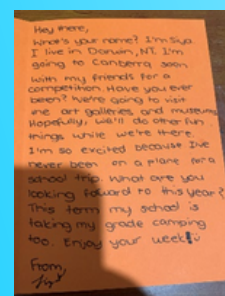 Hey there,
What's your name? I'm Siya.
I live in Darwin, NT. I'm
going to Canberra soon
with my friends for a
competition. Have you ever
been? We're going to visit
the art galleries and museums
Hopefully, we'll do other fun
things while we're there.
I'm so excited because I've
never been on a plane for a
school trip. What are you
looking foward to this year?
This term my school is
taking my grade camping
too. Enjoy your week!
From,